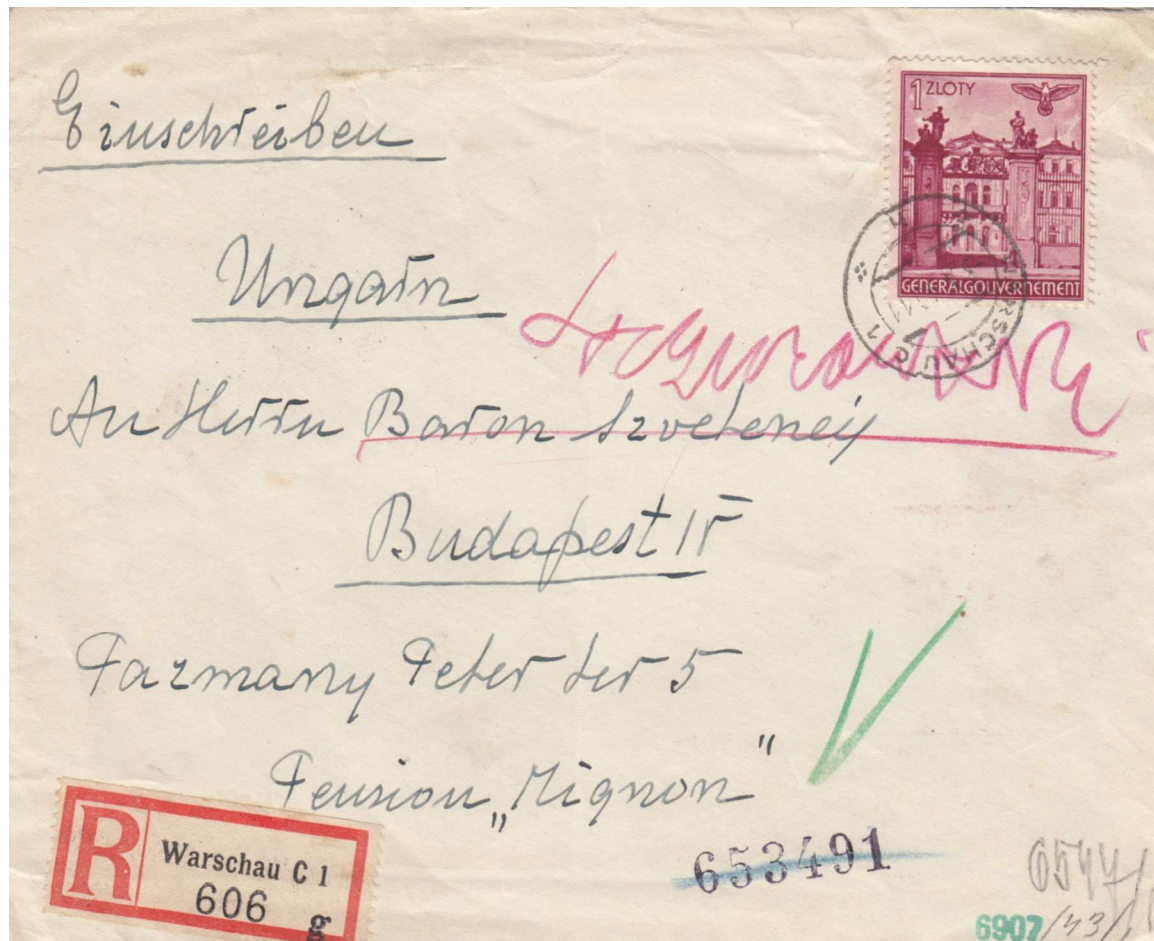 Einschreiben
1 ZLOTY
GENERALGOUVERNEMENT
WARSCHAU C 1
Ungarn
An Herrn Baron Szveteney
Budapest IV
Pazmany Peter ter 5
Pension „Mignon"
R Warschau C 1
606 g
653491
6907/43/